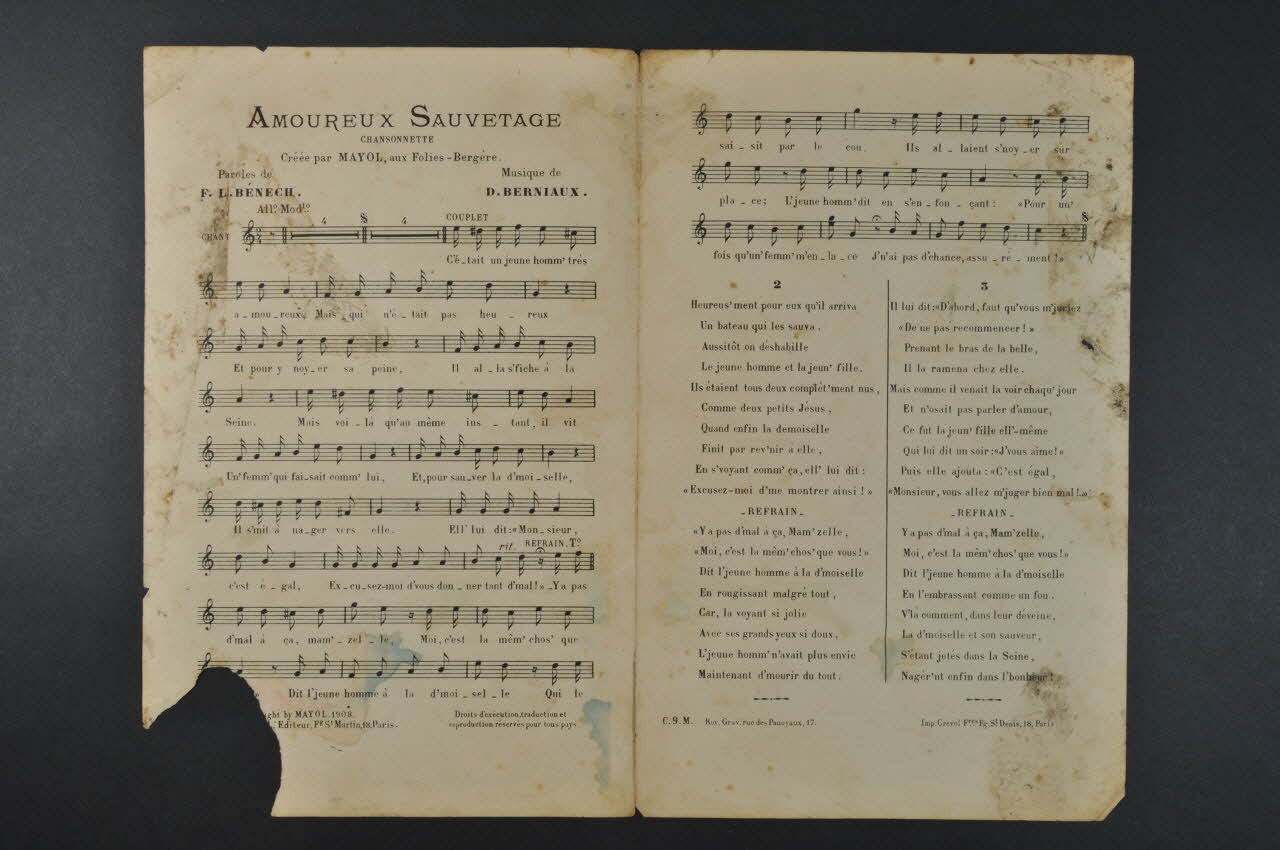 AMOUREUX SAUVETAGE
CHANSONNETTE
Créée par MAYOL, aux Folies-Bergère.
Paroles de
F. L. BÉNECH.
Musique de
D. BERNIAUX.
All.º Mod.to
CHANT
4
4
COUPLET
C'é_tait un jeune homm' très
a_mou_reux, Mais qui n'é_tait pas heu_reux
Et pour y noy_er sa peine, Il al_la s'fiche à la
Seine. Mais voi_là qu'au même ins_tant, il vit
Un' femm' qui fai_sait comm' lui, Et, pour sau_ver la d'moi_selle,
Il s'mit à na_ger vers elle. Ell' lui dit: «Mon_sieur,
rit. REFRAIN. Tº
c'est é_gal, Ex_cu_sez-moi d'vous don_ner tant d'mal!» _Ya pas
d'mal à ça, mam'_zel_le, Moi, c'est la mêm' chos' que
Dit l'jeune homme à la d'moi_sel_le Qui le
ght by MAYOL. 1908.
Editeur, Fg St Martin, 18, Paris.
Droits d'exécution, traduction et
reproduction réservés pour tous pays.
sai_sit par le cou. Ils al_laient s'noy_er sur
pla_ce; L'jeune homm' dit en s'en_fon_çant: «Pour un'
fois qu'un' femm' m'en_la_ce J'n'ai pas d'chance, assu_ré_ment!»
2
Heureus'ment pour eux qu'il arriva
Un bateau qui les sauva.
Aussitôt on déshabille
Le jeune homme et la jeun' fille.
Ils étaient tous deux complét'ment nus,
Comme deux petits Jésus,
Quand enfin la demoiselle
Finit par rev'nir à elle,
En s'voyant comm' ça, ell' lui dit:
«Excusez-moi d'me montrer ainsi!»
_REFRAIN_
«Ya pas d'mal à ça, Mam'zelle,
«Moi, c'est la mêm' chos' que vous!»
Dit l'jeune homme à la d'moiselle
En rougissant malgré tout,
Car, la voyant si jolie
Avec ses grands yeux si doux,
L'jeune homm' n'avait plus envie
Maintenant d'mourir du tout.
3
Il lui dit: «D'abord, faut qu'vous m'juriez
«De ne pas recommencer!»
Prenant le bras de la belle,
Il la ramena chez elle.
Mais comme il venait la voir chaqu' jour
Et n'osait pas parler d'amour,
Ce fut la jeun' fille ell'-même
Qui lui dit un soir: «J'vous aime!»
Puis elle ajouta: «C'est égal,
«Monsieur, vous allez m'juger bien mal!..»
_REFRAIN_
Ya pas d'mal à ça, Mam'zelle,
Moi, c'est la mêm' chos' que vous!»
Dit l'jeune homme à la d'moiselle
En l'embrassant comme un fou.
V'là comment, dans leur déveine,
La d'moiselle et son sauveur,
S'étant jetés dans la Seine,
Nagèr'nt enfin dans l'bonheur!
C. 9. M. Roy. Grav. rue des Panoyaux, 17.
Imp. Crevel Fres Fg. St Denis, 18, Paris